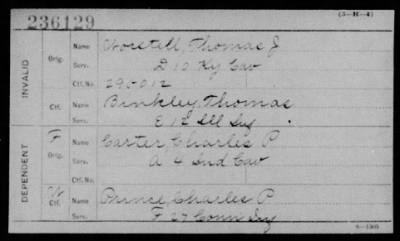 236129
(3-H-4)
INVALID
Orig.
Name Worstell, Thomas J
Serv. D 10 Ky Cav
Ctf. No. 290012
Ctf.
Name Binkley, Thomas
Serv. E 12 Ill Inf
DEPENDENT
Orig.
Name Carter, Charles P.
Serv. A 4 Ind Cav
Ctf. No.
Ctf.
Name Prince, Charles P
Serv. F 27 Conn Inf